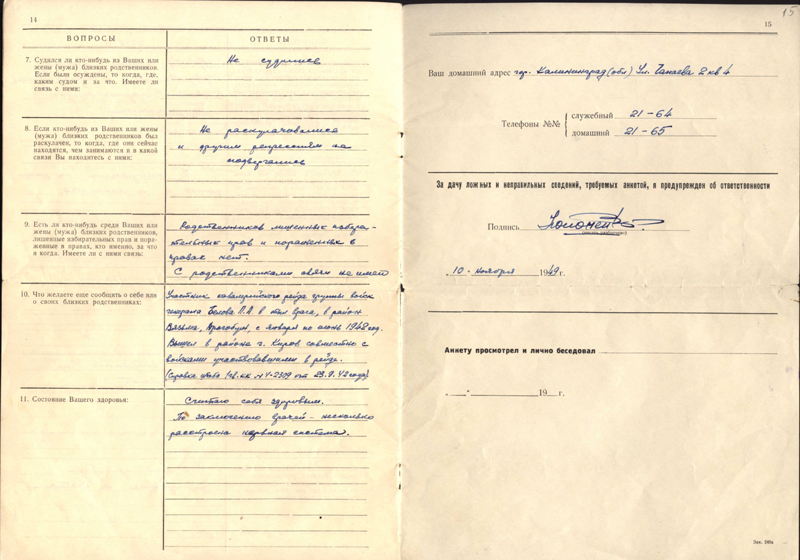 14
ВОПРОСЫ
ОТВЕТЫ
7. Судился ли кто-нибудь из Ваших или
жены (мужа) близких родственников.
Если были осуждены, то когда, где,
каким судом и за что. Имеете ли
связь с ними:
Не судились
8. Если кто-нибудь из Ваших или жены
(мужа) близких родственников был
раскулачен, то когда, где они сейчас
находятся, чем занимаются и в какой
связи Вы находитесь с ними:
Не раскулачивались
и другим репрессиям не
подвергались
9. Есть ли кто-нибудь среди Ваших или
жены (мужа) близких родственников,
лишенные избирательных прав и пора-
женные в правах, кто именно, за что
и когда. Имеете ли с ними связь:
Родственников лишенных избира-
тельных прав и пораженных в
правах нет.
С родственниками связи не имею
10. Что желаете еще сообщить о себе или
о своих близких родственниках:
Участник кавалерийского рейда группы войск
генерала Белова П.А. в тыл врага, в район
Вязьма, Дорогобуж, с января по июнь 1942 год.
Вышел в районе г. Киров совместно с
войсками участвовавшими в рейде.
(Справка штаба 1 гв.кк. № 4-2309 от 23.9.42 года)
11. Состояние Вашего здоровья:
Считаю себя здоровым.
По заключению врачей - несколько
расстроена нервная система.
15
15
Ваш домашний адрес гор. Калининград (обл) Ул. Чапаева 2 кв 4
Телефоны №№
служебный 21-64
домашний 21-65
За дачу ложных и неправильных сведений, требуемых анкетой, я предупрежден об ответственности
Подпись
„10„ ноября 1949 г.
Анкету просмотрел и лично беседовал
„ - „ 19 г.